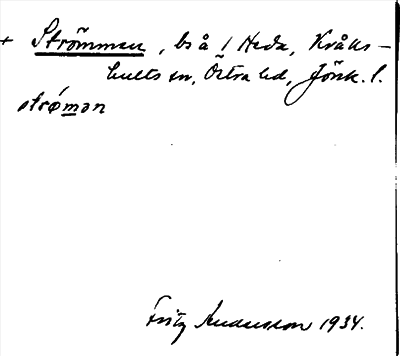 + Strömmen, bs å 1 Heda, Kråks-
hults sn, Östra hd, Jönk. l.
strómən
Fritz Andersson 1934.